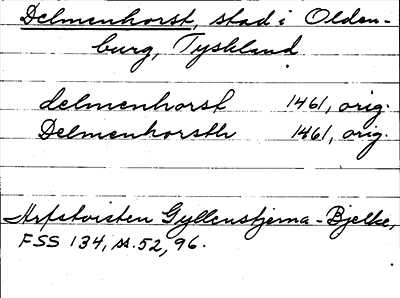 Delmenhorst, stad i Olden-
burg, Tyskland
delmenhorst 1461, orig.
Delmenhorsth 1461, orig.
Arfstvisten Gyllenstjerna - Bjelke,
FSS 134, s. 52, 96.